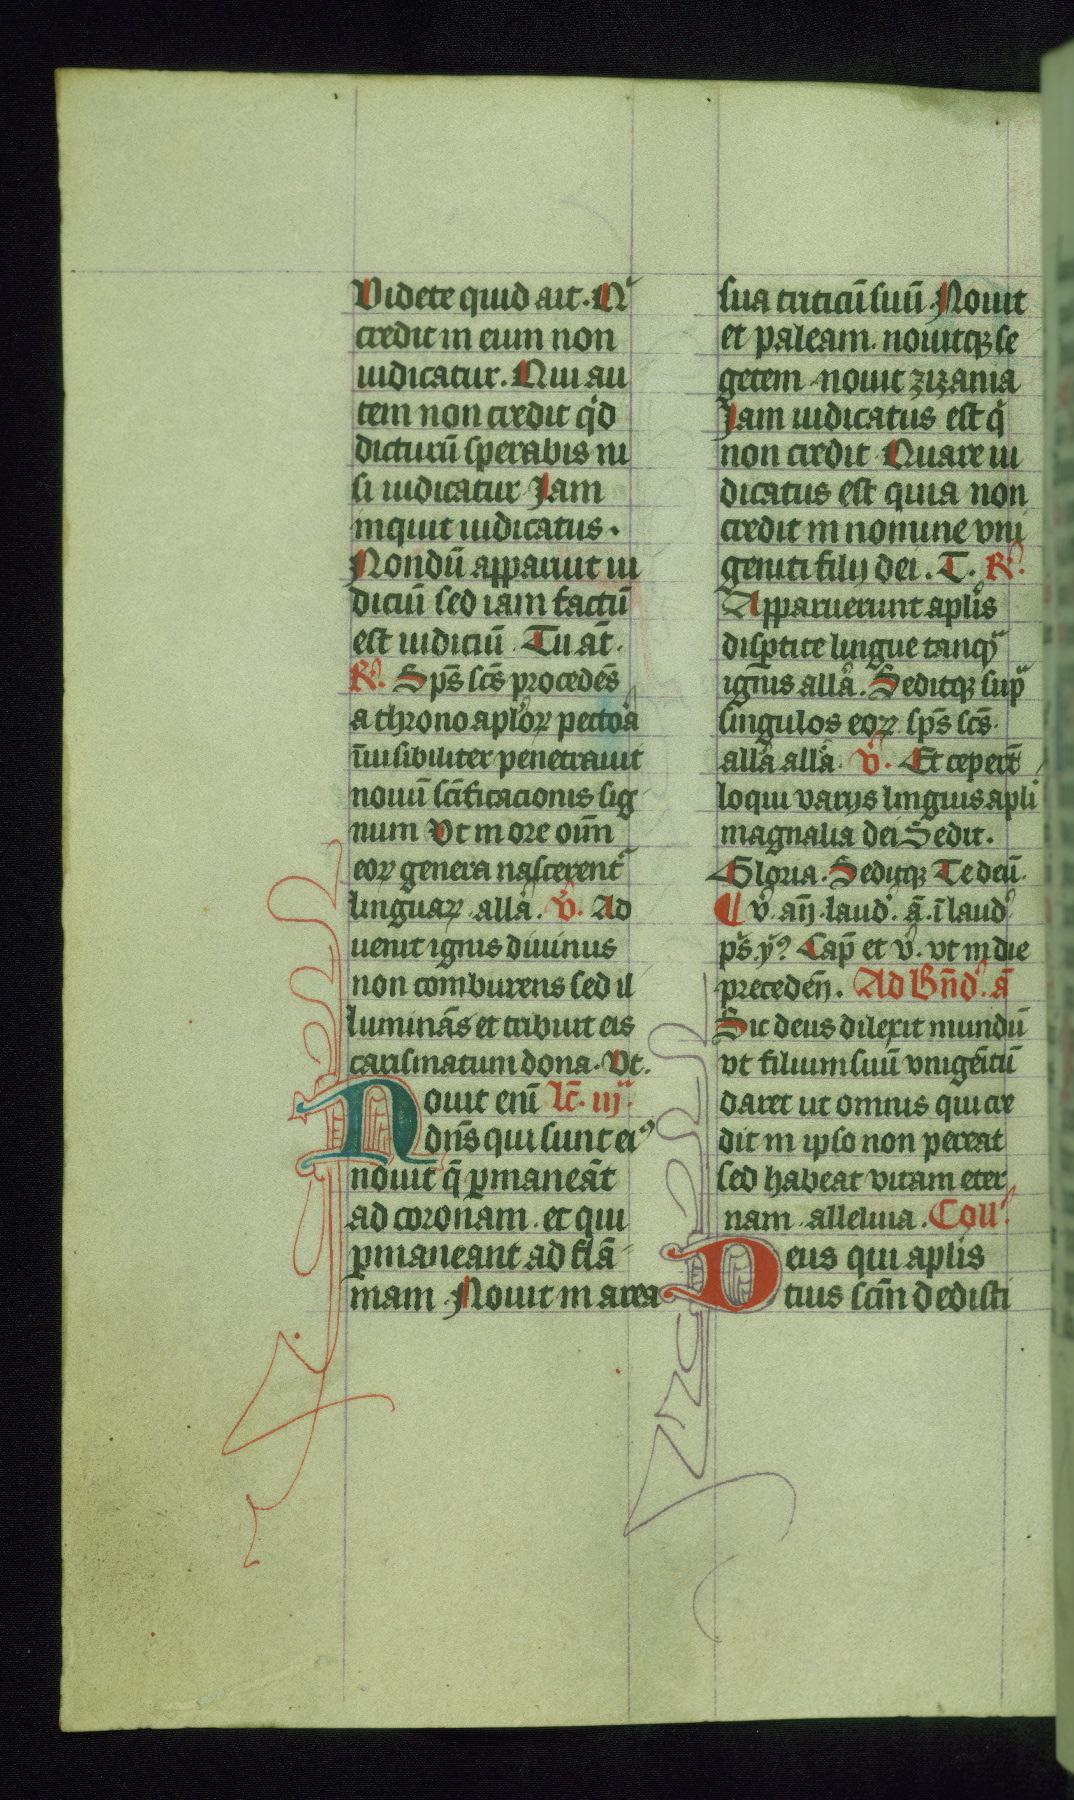 Videte quid ait. Qͥ
credit in eum non
iudicatur. Qui au
tem non credit qͥd
dicturū sperabis ni
si iudicatur Jam
inquit iudicatus.
Nondū apparuit iu
diciū sed iam factū
est iudiciū. Tu at̄.
R̾. Sp̄s sc̄s procedēs
a throno apl̾oꝝ pectoͣa
īuisibiliter penetrauit
nouū sc̄ificacionis sig
num Vt in ore oīm
eoꝝ genera nascerent᷑
linguaꝝ alla̾. V̾. Ad
uenit ignis diuinus
non comburens sed il
luminās et tribuit eis
carismatum dona. Vt.
Nouit enī Lc̄. iijͣ.
dn̄s qui sunt eiꝰ
nouit q̄ ꝑmaneāt
ad coronam. et qui
ꝑmaneant ad flā
mam Nouit in area
sua triticū suū. Nouit
et paleam. nouitqꝫ se
getem. nouit zizania
Jam iudicatus est qͥ
non credit Quare iu
dicatus est quia non
credit in nomine vni
geniti filij dei. T. R̾.
Apparuerunt apl̾is
disꝑtite lingue tanqͣ
ignis alla̾. Seditqꝫ supͣ
singulos eoꝝ sp̄s sc̄s.
alla̾ alla̾. V̾. Et ceperūt
loqui varijs linguis apl̾i
magnalia dei Sedit.
Gloria. Seditqꝫ Te deū.
¶ V̾. an̄ laud̾. ā. ī laud̾
ps̾. y̾ꝰ Cap̄ et V̾. vt in die
preceden̄. Ad Bn̄d̾. ā
Sic deus dilexit mundū
vt filium suū vnigēitū
daret ut omnis qui cre
dit in ipso non pereat
sed habeat vitam eter
nam. alleluia. Coll̾.
Deus qui apl̾is
tuis sc̄m dedisti